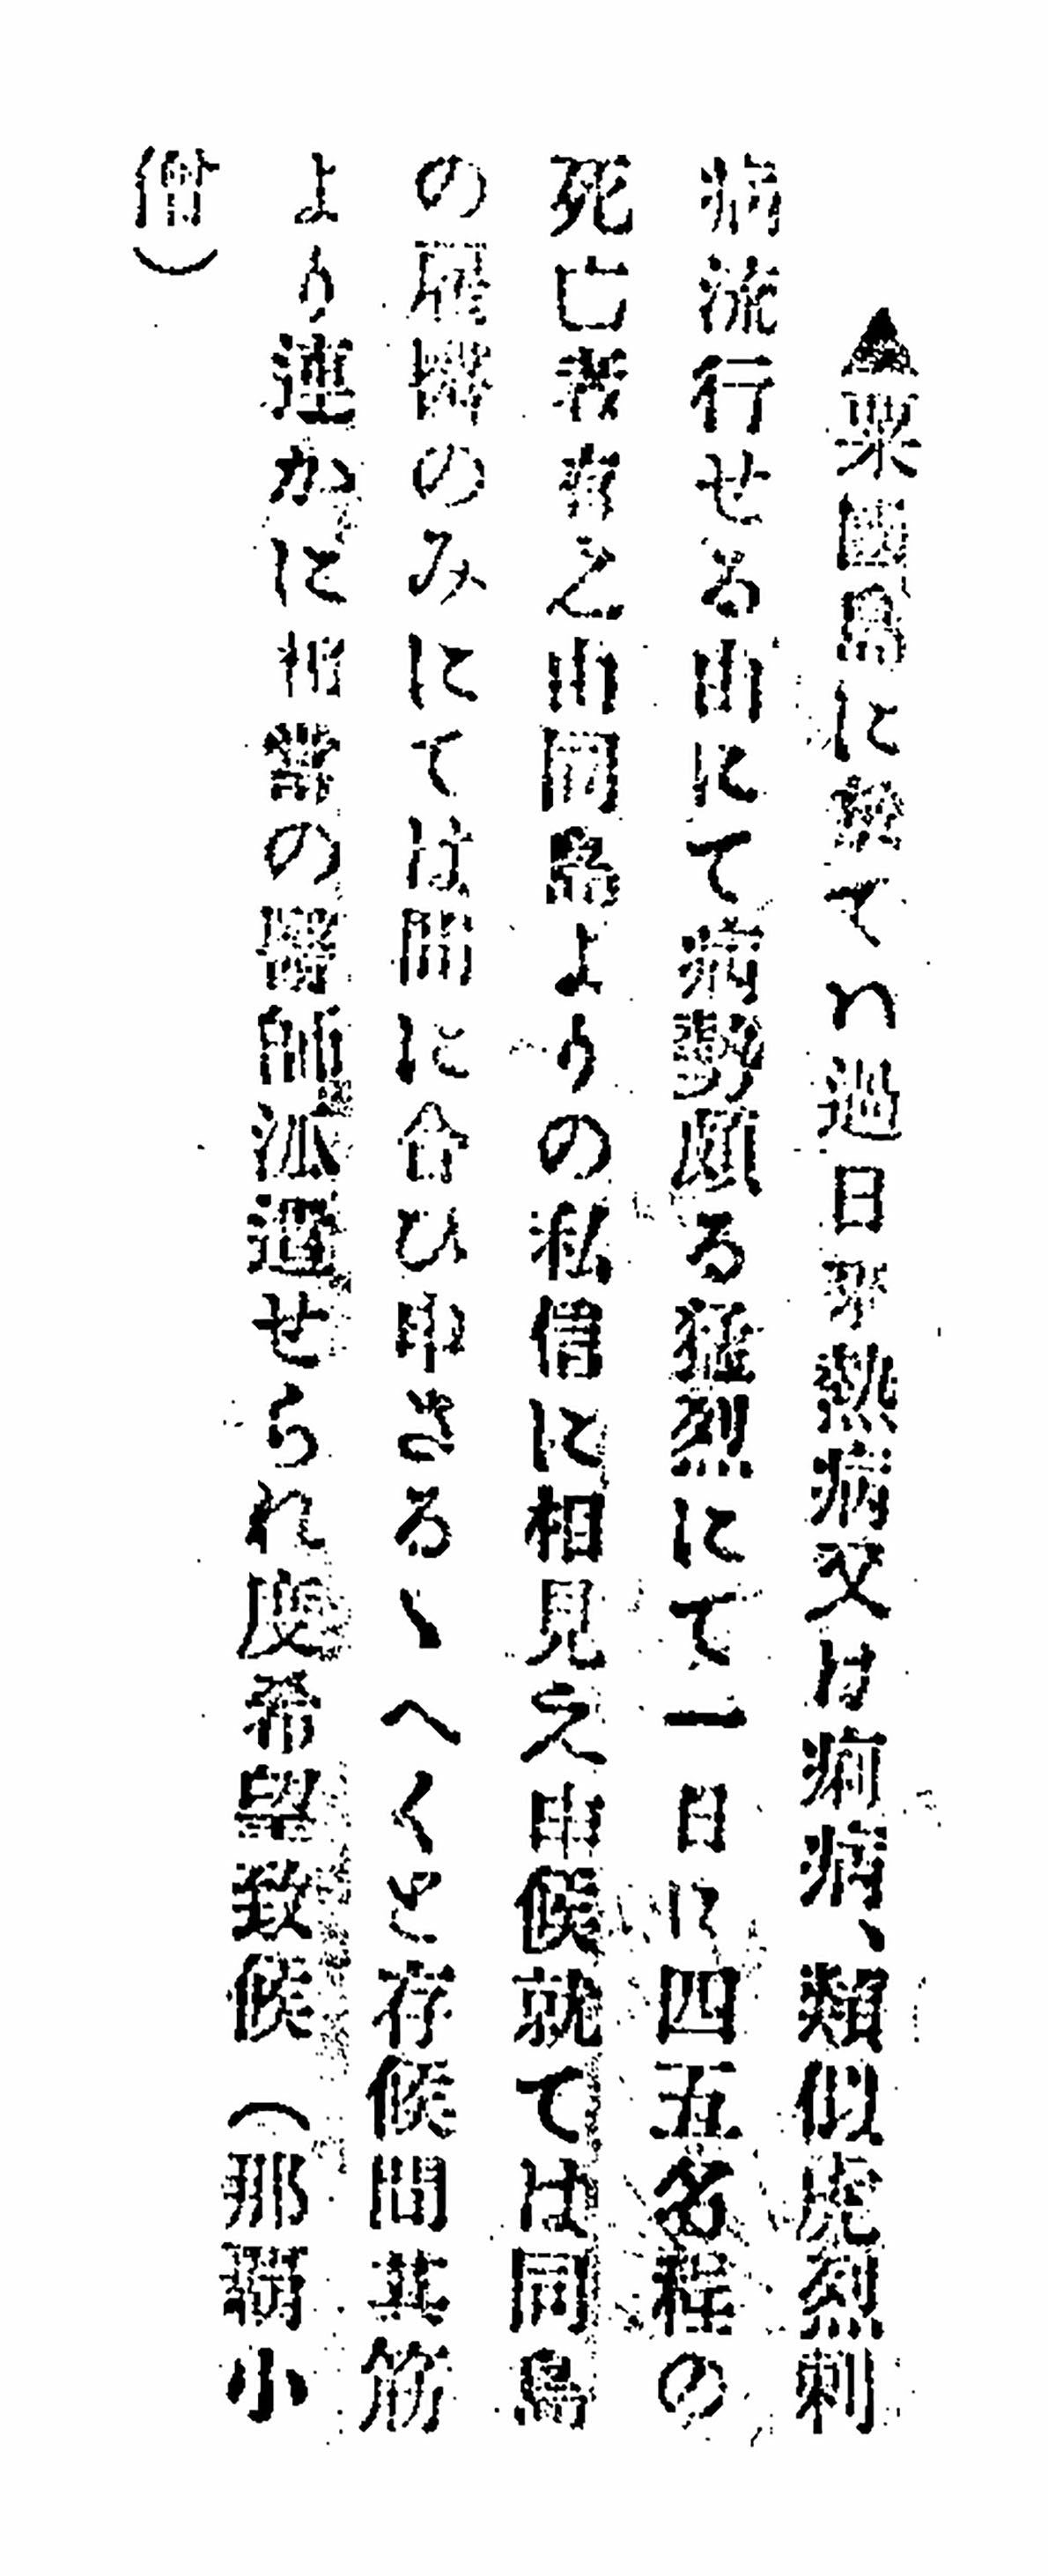 ▲粟國島に於てハ過日來熱病又は痢病、類似虎烈剌
病流行せる由にて病勢頗る猛烈にて一日に四五名程の
死亡者有之由同島よりの私信に相見之申候就ては同島
の雇醫のみにては間に合ひ申さるゝへくと存候間其筋
より速かに相當の醫師派遣せられ度希望致候（那覇小
僧）